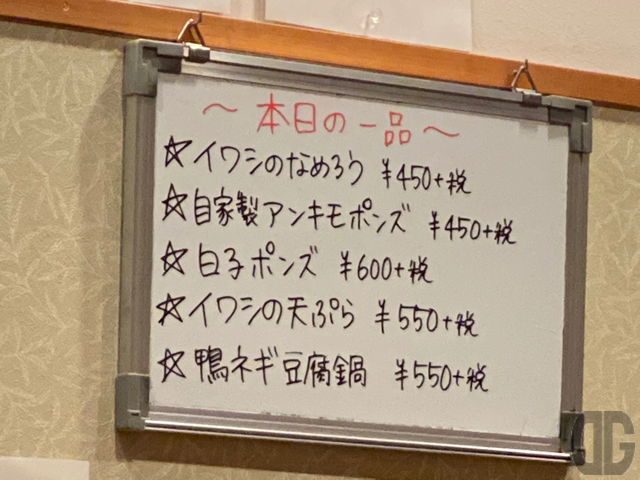 ～本日の一品～
☆イワシのなめろう ¥450+税
☆自家製アンキモポンズ ¥450+税
☆白子ポンズ ¥600+税
☆イワシの天ぷら ¥550+税
☆鴨ネギ豆腐鍋 ¥550+税
DG